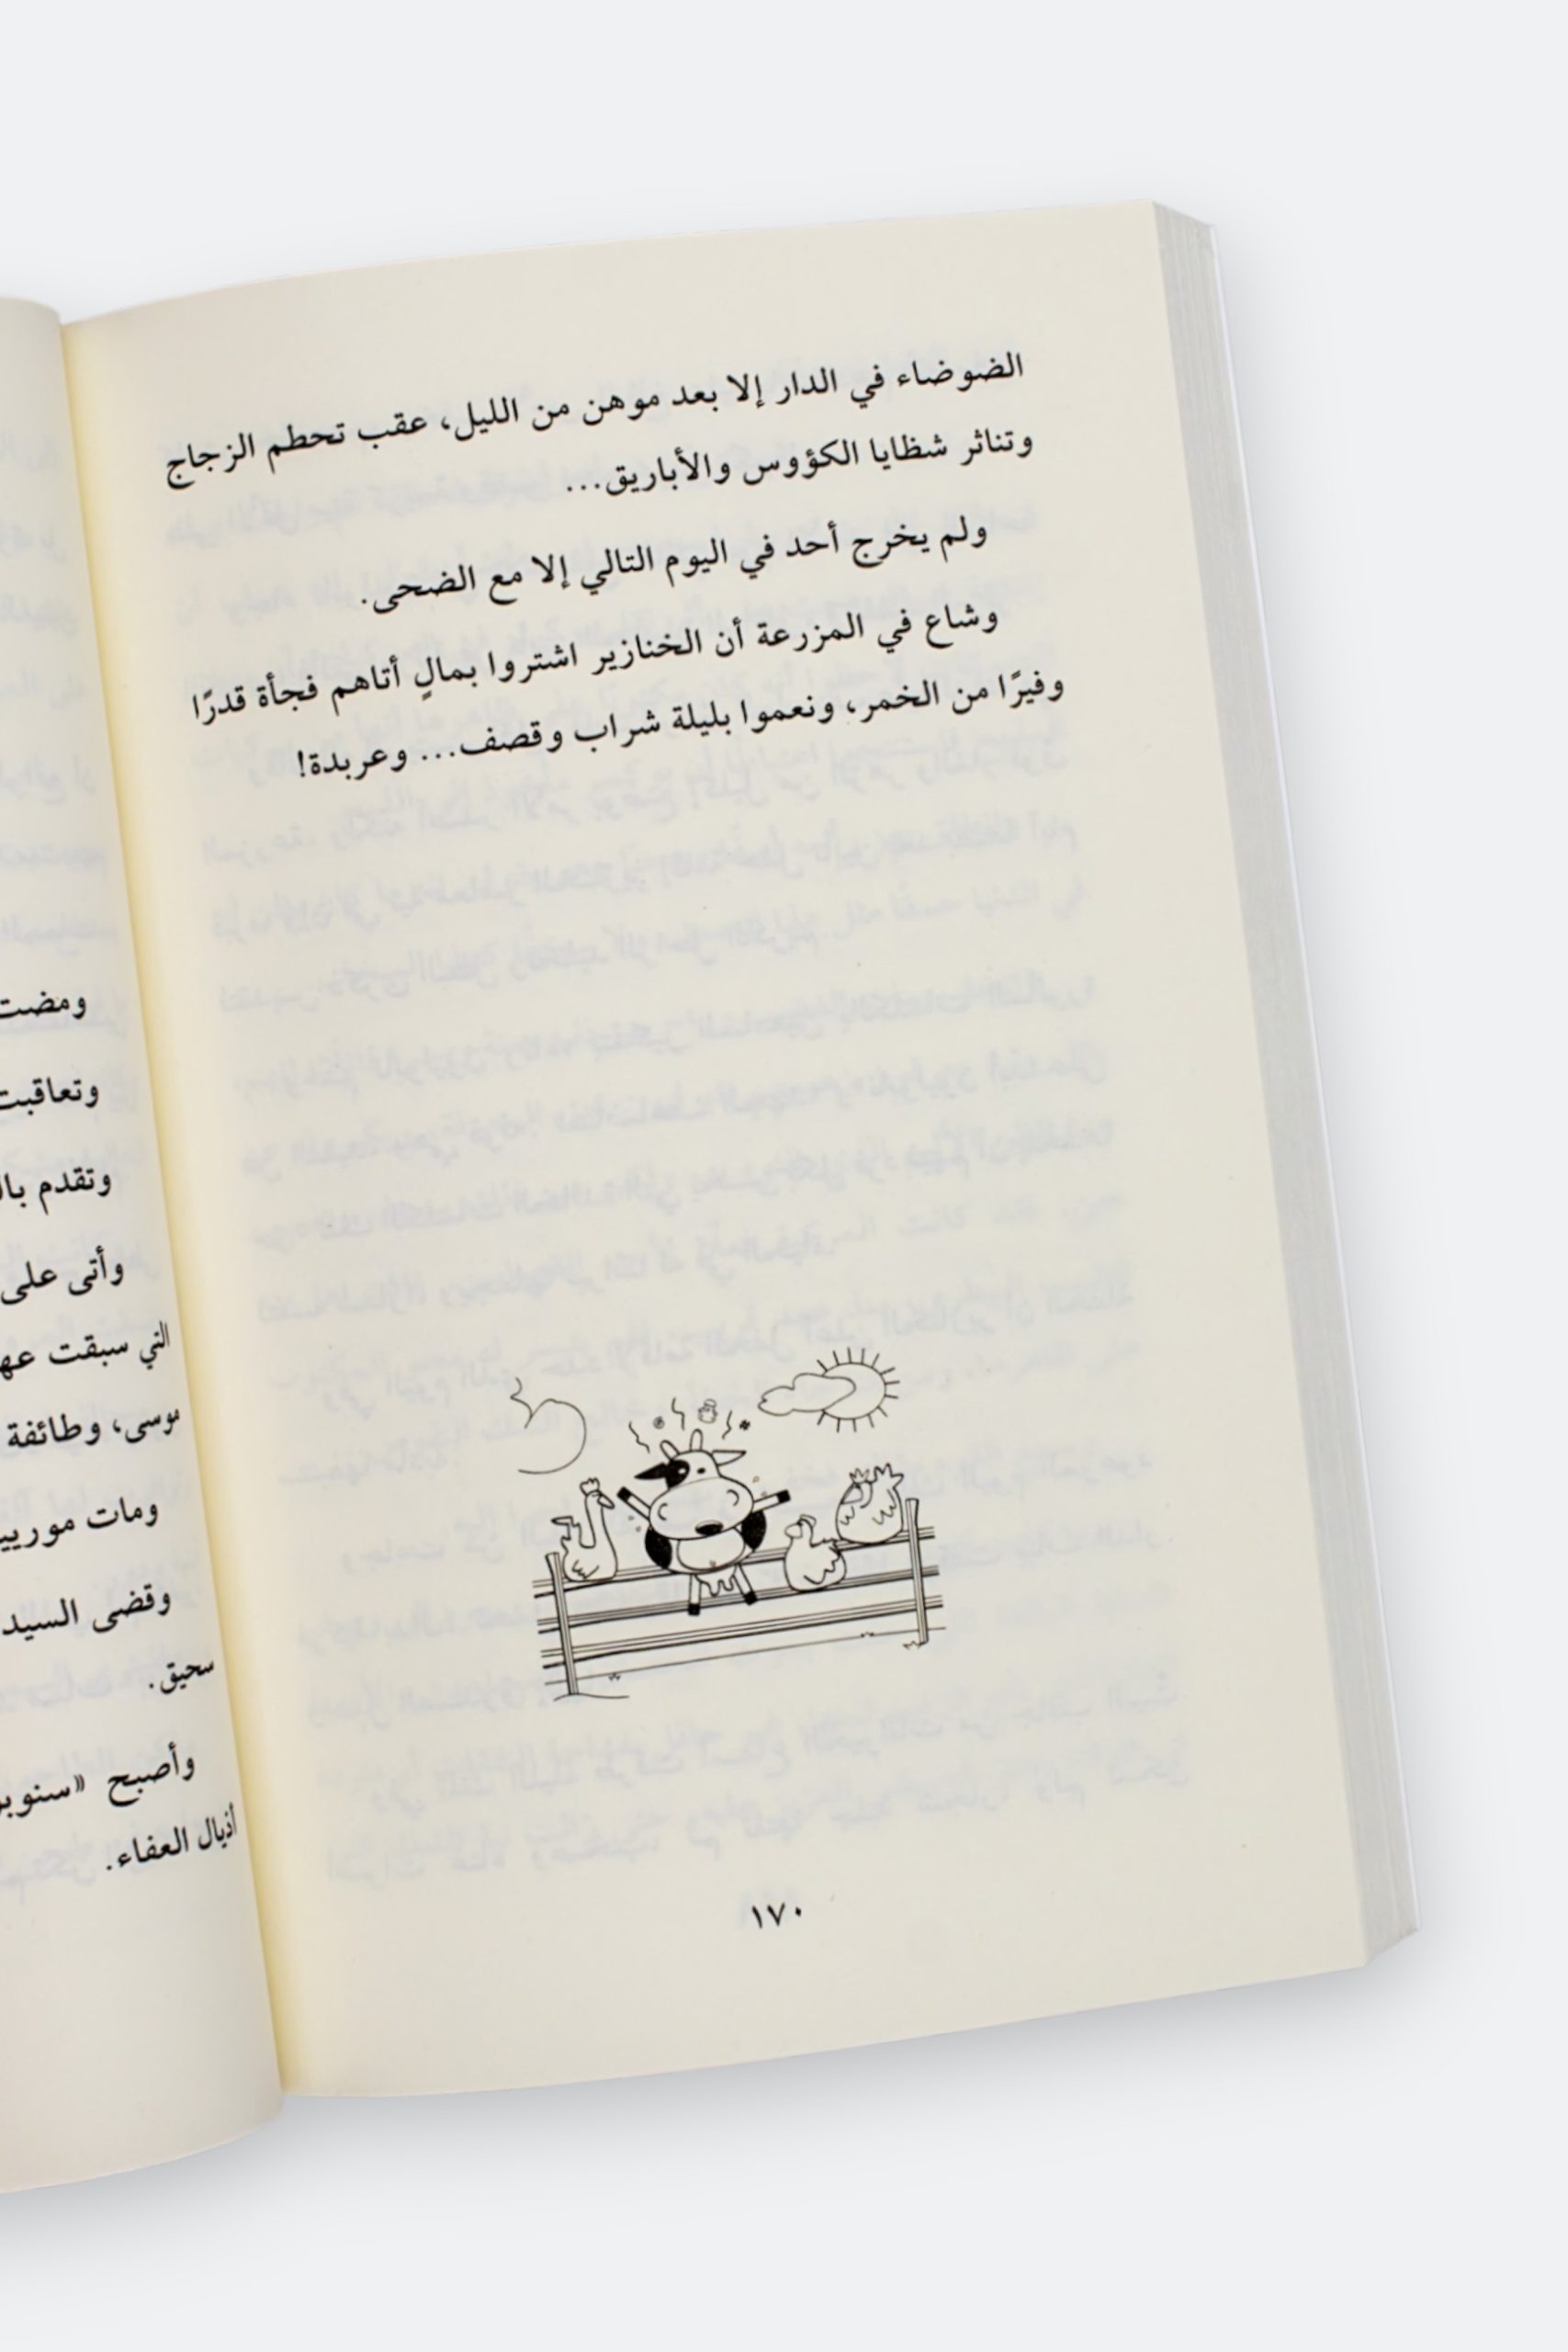 الضوضاء في الدار إلا بعد موهن من الليل، عقب تحطم الزجاج
وتناثر شظايا الكؤوس والأباريق...
ولم يخرج أحد في اليوم التالي إلا مع الضحى.
وشاع في المزرعة أن الخنازير اشتروا بمالٍ أتاهم فجأة قدرًا
وفيرًا من الخمر، ونعموا بليلة شراب وقصف... وعربدة!
١٧٠
ومضت
وتعاقبت
وتقدم
وأتى على
التي سبقت
موسى، وطائفة
ومات
وقضى السيد
سحيق.
وأصبح
أذيال العفاء.